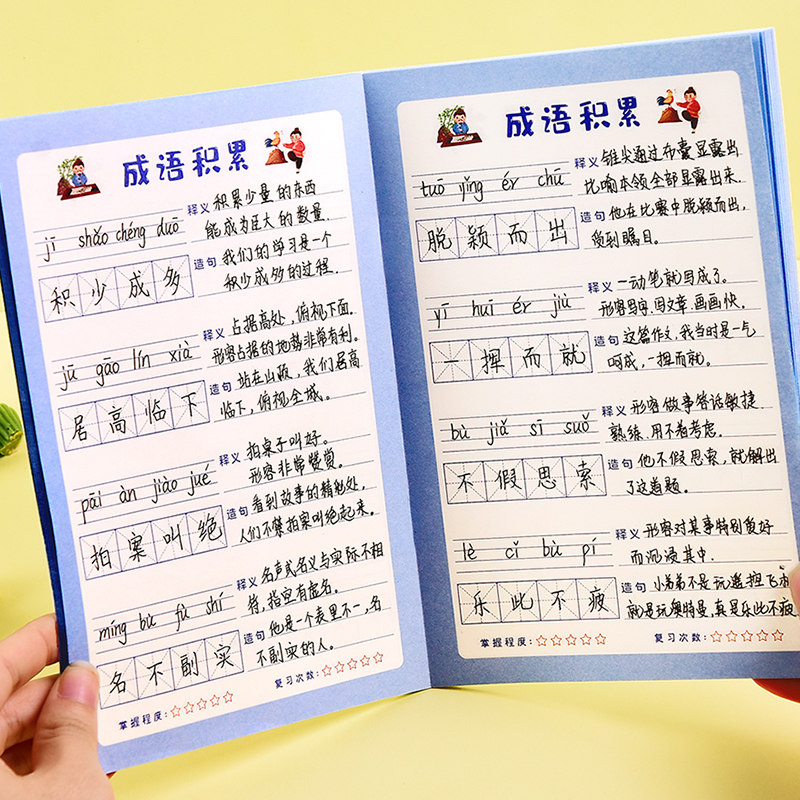 成语积累
jī shǎo chéng duō
积少成多
释义 积累少量的东西
能成为巨大的数量.
造句 我们的学习是一个
积少成多的过程.
jū gāo lín xià
居高临下
释义 占据高处,俯视下面.
形容占据的地势非常有利.
造句 站在山巅,我们居高
临下,俯视全城.
pāi àn jiào jué
拍案叫绝
释义 拍桌子叫好。
形容非常赞赏。
造句 看到故事的精彩处,
人们不禁拍案叫绝起来.
míng bù fù shí
名不副实
释义 名声或名义与实际不相
符,指空有虚名.
造句 他是一个表里不一,名
不副实的人。
掌握程度:☆☆☆☆☆ 复习次数:☆☆☆☆☆
成语积累
tuō yǐng ér chū
脱颖而出
释义 锥尖通过布囊显露出
比喻本领全部显露出来.
造句 他在比赛中脱颖而出,
受到瞩目。
yī huī ér jiù
一挥而就
释义 一动笔就写成了。
形容写字、写文章、画画快.
造句 这篇作文,我当时是一气
呵成,一挥而就。
bù jiǎ sī suǒ
不假思索
释义 形容做事答话敏捷.
熟练.用不着考虑.
造句 他不假思索,就解出
了这道题。
lè cǐ bù pí
乐此不疲
释义 形容对某事特别爱好
而沉浸其中.
造句 小弟弟不是玩遥控飞
就是玩奥特曼,真是乐此不疲.
掌握程度:☆☆☆☆☆ 复习次数:☆☆☆☆☆